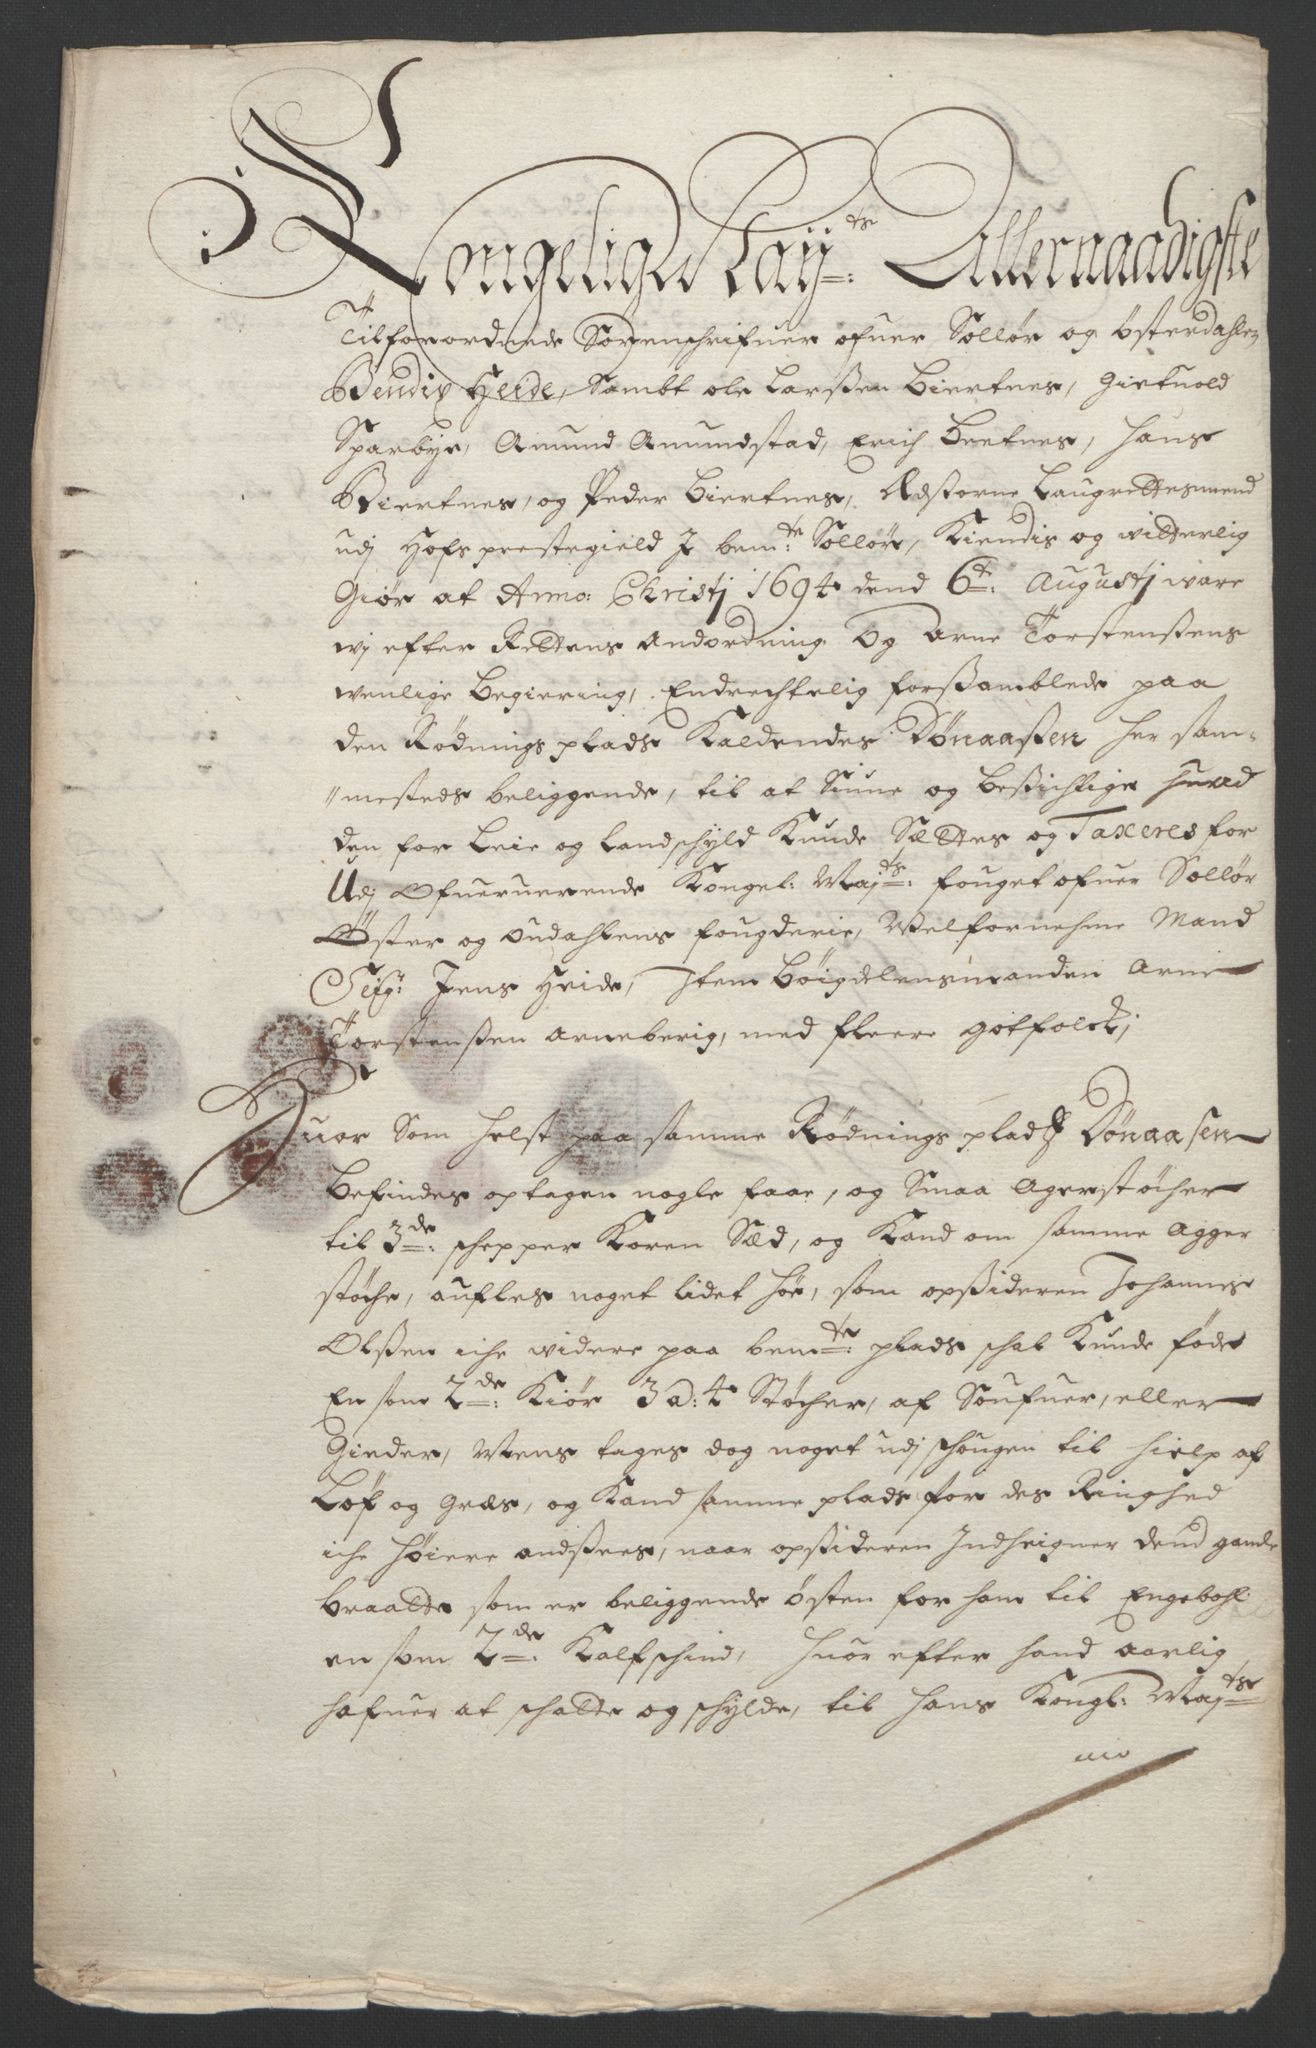 Kongelige May:ts Allernaadigste
Tilforordnede Sorenschrifuer ofuer Sollør og Østerdahlen
Bendix Heide, Sambt ole Larsßen Biertnes, Gietuold
Sparbye, Amund Amundstad, Erich Bertnes, Hans
Biertnes, og Peder Biertnes, Edsorne Laugrettesmend
udj Hofs prestegield I bem:te Sollør, Kiendis og witterlig
Giør at Anno: Christj 1694 dend 6te: Augustj ware
wj efter Rettens Andordning Og Arne Torstensßens
wenlige Begiering, Endrechtelig forsßamblede paa
den Rødnings plads Kaldendes Dønaasßen her sam-
mesteds beliggende, til at Siune og Besichtige huad
den for Leie og Landschyld Kunde Settes og Taxeres for
Udj Ofueruerende Kongel: Maj:ts fouget ofuer Sollør
Øster og Oudahlens fougderie, Welfornehme Mand
Sigr: Jens Heide, Item Bøigdelensmanden Arne
Torstensßen Arneberig, med fleere gotfolck;
Huor Som helst paa samme Rødnings plads Dønaasen
Befindes optagen nogle faae, og Smaa Agerstøcher
til 3de: schepper Koren Sæd, og Kand om samme Agger
støche, aufles noget lidet høe, som opsßideren Johannes
Olsßen iche widere paa bem:te plads schal Kunde føde
En som 2de: Kiør 3 a: 4 Støcher, af Soufuer, eller
Gieder, Mens tages dog noget udj schougen til hielp af
Løf og Græs, og Kand samme plads for des Ringhed
iche høiere ansßees, naar opsßideren Indheigner dend gamle
braatte som er beliggende østen for ham til Engebohl
en som 2de: Kalfschind, huor efter hand aarlig
hafuer at schatte og schylde, til Hans Kongl: Maj:ts